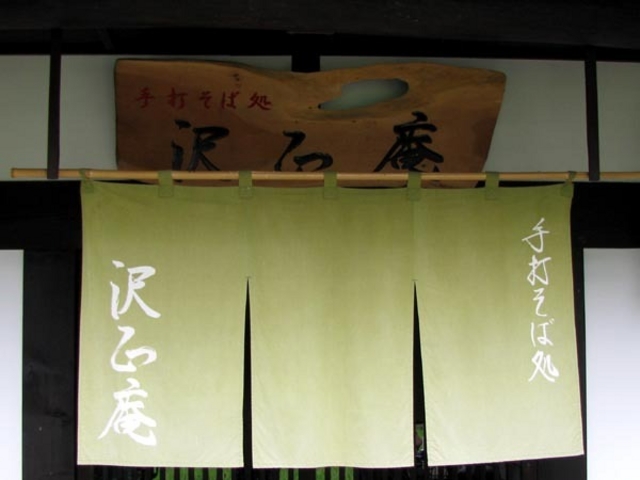 手打そば処
沢正庵
手打そば処
沢正庵